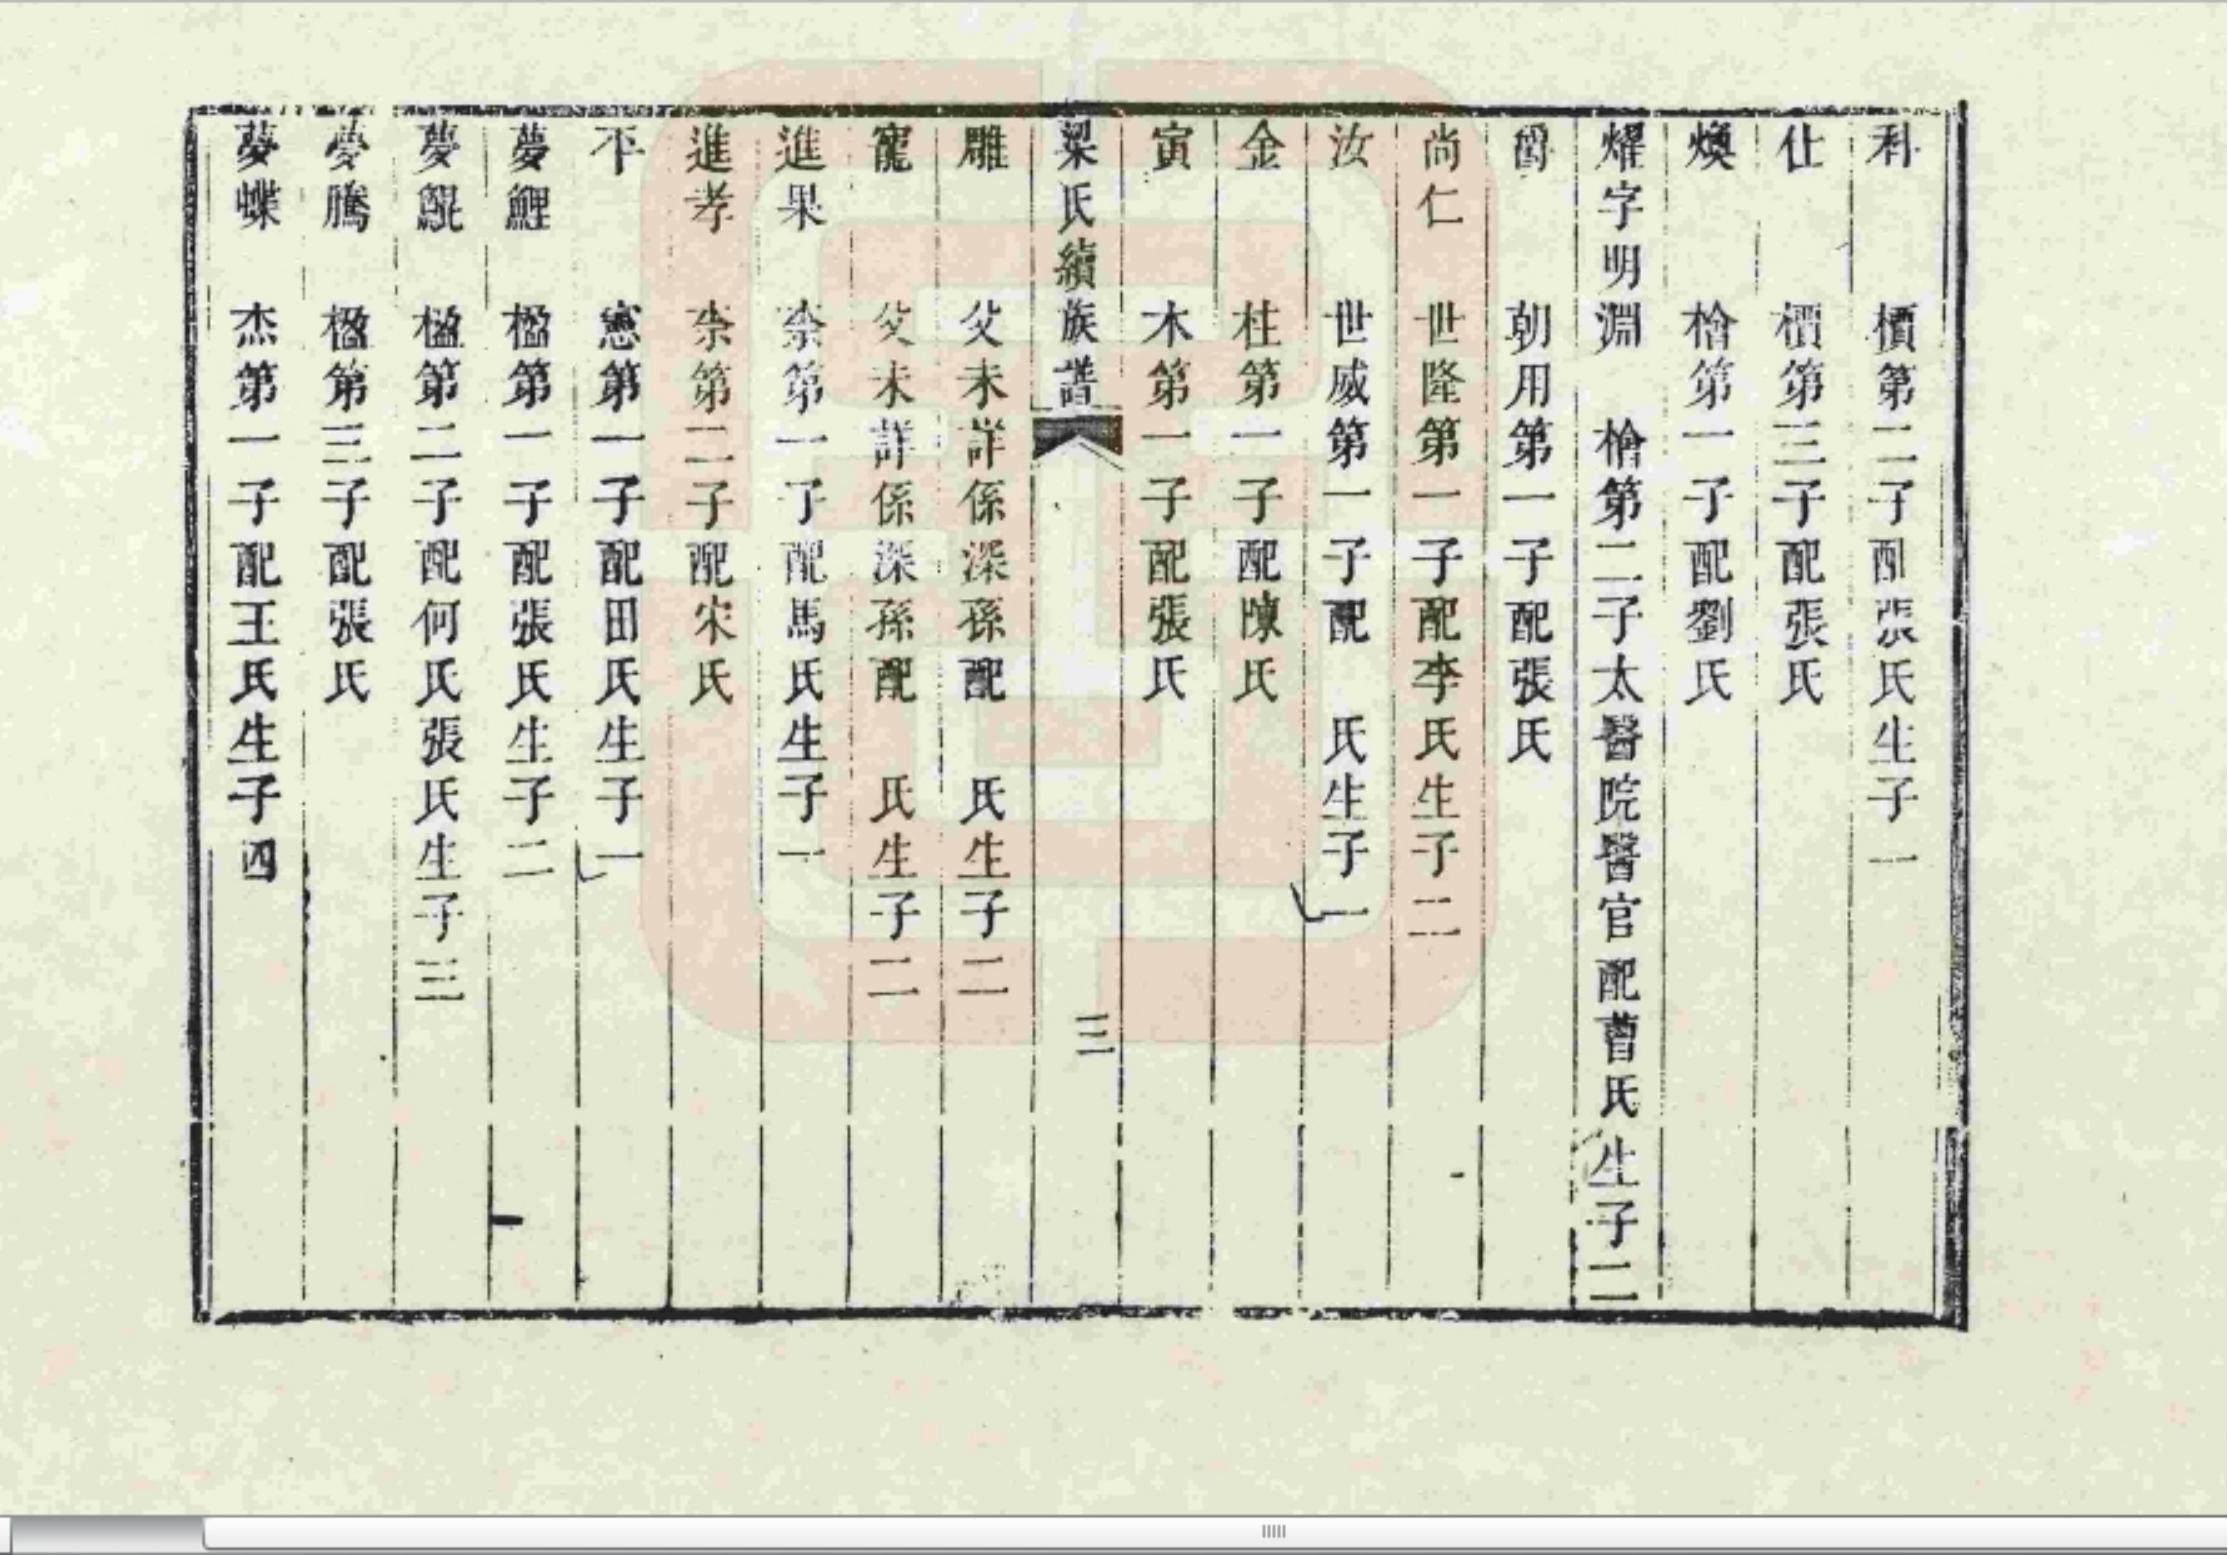 利 檟第二子配張氏生子一
仕 檟第三子配張氏
燠 檜第一子配劉氏
燿字明淵 檜第二子太醫院醫官配曹氏生子二
爵 朝用第一子配張氏
尚仁 世隆第一子配李氏生子二
汝 世威第一子配 氏生子一
金 柱第一子配陳氏
寅 木第一子配張氏
梁氏續族譜 三
雕 父未詳係深孫配 氏生子二
寵 父未詳係深孫配 氏生子二
進果 柰第一子配馬氏生子一
進孝 柰第二子配宋氏
不 憲第一子配田氏生子一
夢鯉 楹第一子配張氏生子二
夢鯤 楹第二子配何氏張氏生子三
夢騰 楹第三子配張氏
夢蝶 杰第一子配王氏生子四